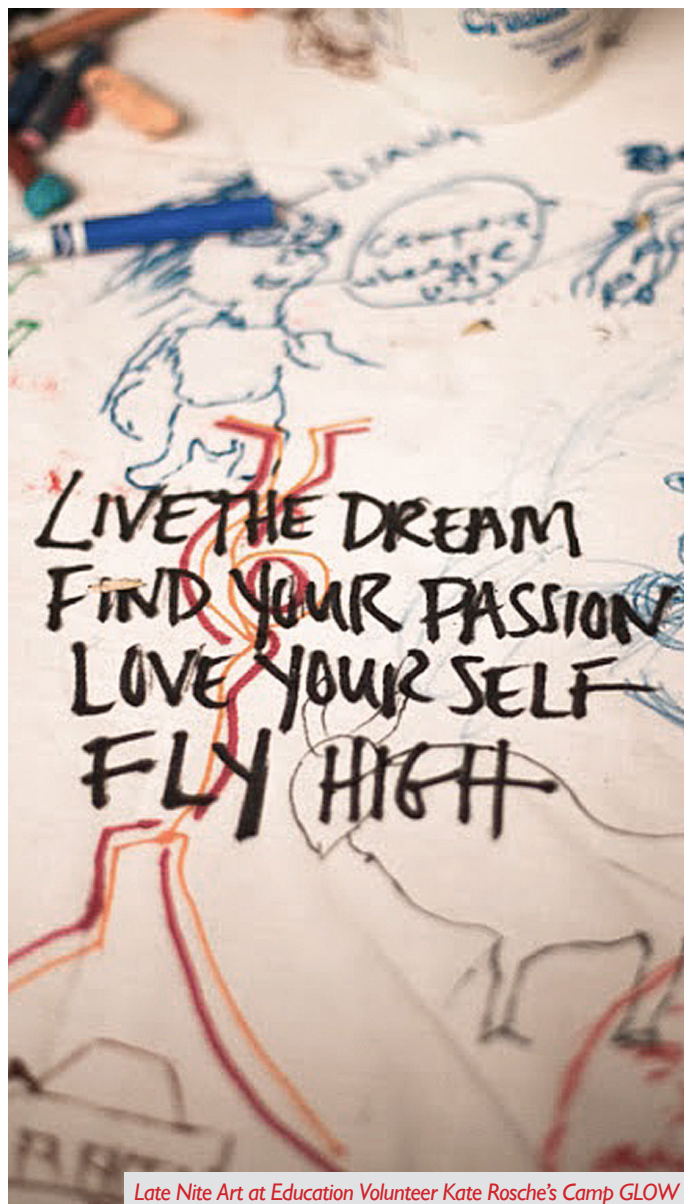 DIANA
LIVE THE DREAM
FIND YOUR PASSION
LOVE YOURSELF
FLY HIGH
Late Nite Art at Education Volunteer Kate Rosche's Camp GLOW